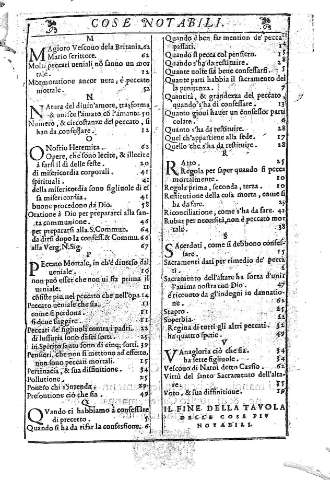 COSE NOTABILI.
M
Magioro Vescouo dela Britania. 62
Mario scrittore. 62
Molti peccati veniali nō fanno un mor
tale. 12
Mormoratione ancor uera, è peccato
mortale. 52
N
Natura del diuin'amore, trasforma
& unisce l'amato cō l'amante
Numero, & circonstanze del peccato, si
han da confessare. 12
O
Onofrio Heremita. 62
Opere, che sono lecite, & illecite
à farsi il dì delle feste. 20
di misericordia corporali. 41
spirituali. 41
della misericordia sono figliuole di es
sa misericordia. 41
buone procedono da Dio. 58
Oratione à Dio per prepararsi alla san
ta communione. 67
per prepararsi alla S. Commun. 64
da dirsi dopo la confess. & Commu. 66
alla Verg. N. Sig. 67
P
Peccato Mortale, in ch'è diuerso dal
ueniale. 10
non può esser che non ui sia prima il
ueniale. 11
Peccato ueniale che sia. 11
come si perdona. 11
si deue fuggire. 11
Peccati de' figliuoli contra i padri. 22
di lussuria sono disei sorti. 25
in Spirito santo sono di cinq; sorti. 39
Pensieri, che non si mettono ad effetto,
non sono peccati mortali. 15
Pertinacia, & sua diffinitione. 54
Pollutione. 25
Presontioni ciò che sia. 39
Q
Quando ci habbiamo à confessare
di precetto. 5
Quando si ha da rifar la confessione. 6
Quando è ben far mention de' pecca
passati. 12
Quando si pecca col pensiero. 15
Quando s'ha da restituire. 28
Quante uolte sia bene confessarsi. 5
Quante parti habbia il sacramento del
la penitenza. 7
Quantità, & grandezza del peccato,
quando s'ha di confessare. 13
Quanto gioui hauer un confessor parti
colare. 6
Quanto s'ha da restituire. 28
Quel ch'appartiene alla fede. 17
Quello che s'ha da restituire. 28
R
Ratto. 25
Regola per saper quando si pecca
mortalmente. 10
Regola prima, seconda, terza. 10
Restitutione della cosa morta, come si
ha da fare. 29
Riconciliatione, come s'ha da fare. 45
Rubar per necessità, non è peccato mor
tale. 38
S
Sacerdoti, come si debbono confes-
sare. 35
Sacramenti dati per rimedio de' pecca
ti. 6
Sacramento dell'altare ha forza d'unir
l'anima nostra con Dio. 47
è riceuuto da gl'indegni in dannatio-
ne. 62
Stupro. 25
Superbia. 62
Regina di tutti gli altri peccati. 52
ha quattro spetie. 49
V
Vanagloria ciò che sia. 54
ha sette figliuole. 54
Vescouo di Narni detto Cassio. 62
Virtù del santo Sacramento dell'alta-
re. 57
Voto, & sua diffinitione. 19
IL FINE DELLA TAVOLA
DELLE COSE PIV
NOTABILI.